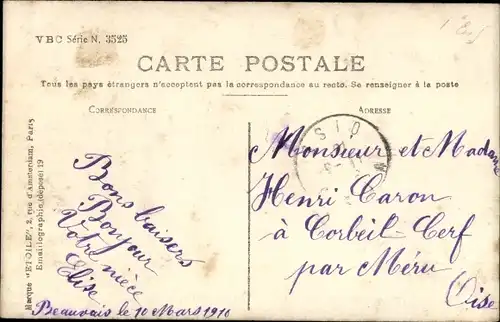 VBC Série N. 3525
CARTE POSTALE
Tous les pays étrangers n'acceptent pas la correspondance au recto. Se renseigner à la poste
CORRESPONDANCE
ADRESSE
Marque "ETOILE", 2, rue d'Amsterdam, Paris
Emaillographie déposé 19
Bons baisers
Bonjour
Votre nièce
Elise
Beauvais le 10 Mars 1910
Monsieur et Madame
Henri Caron
à Corbeil-Cerf
par Méru
Oise